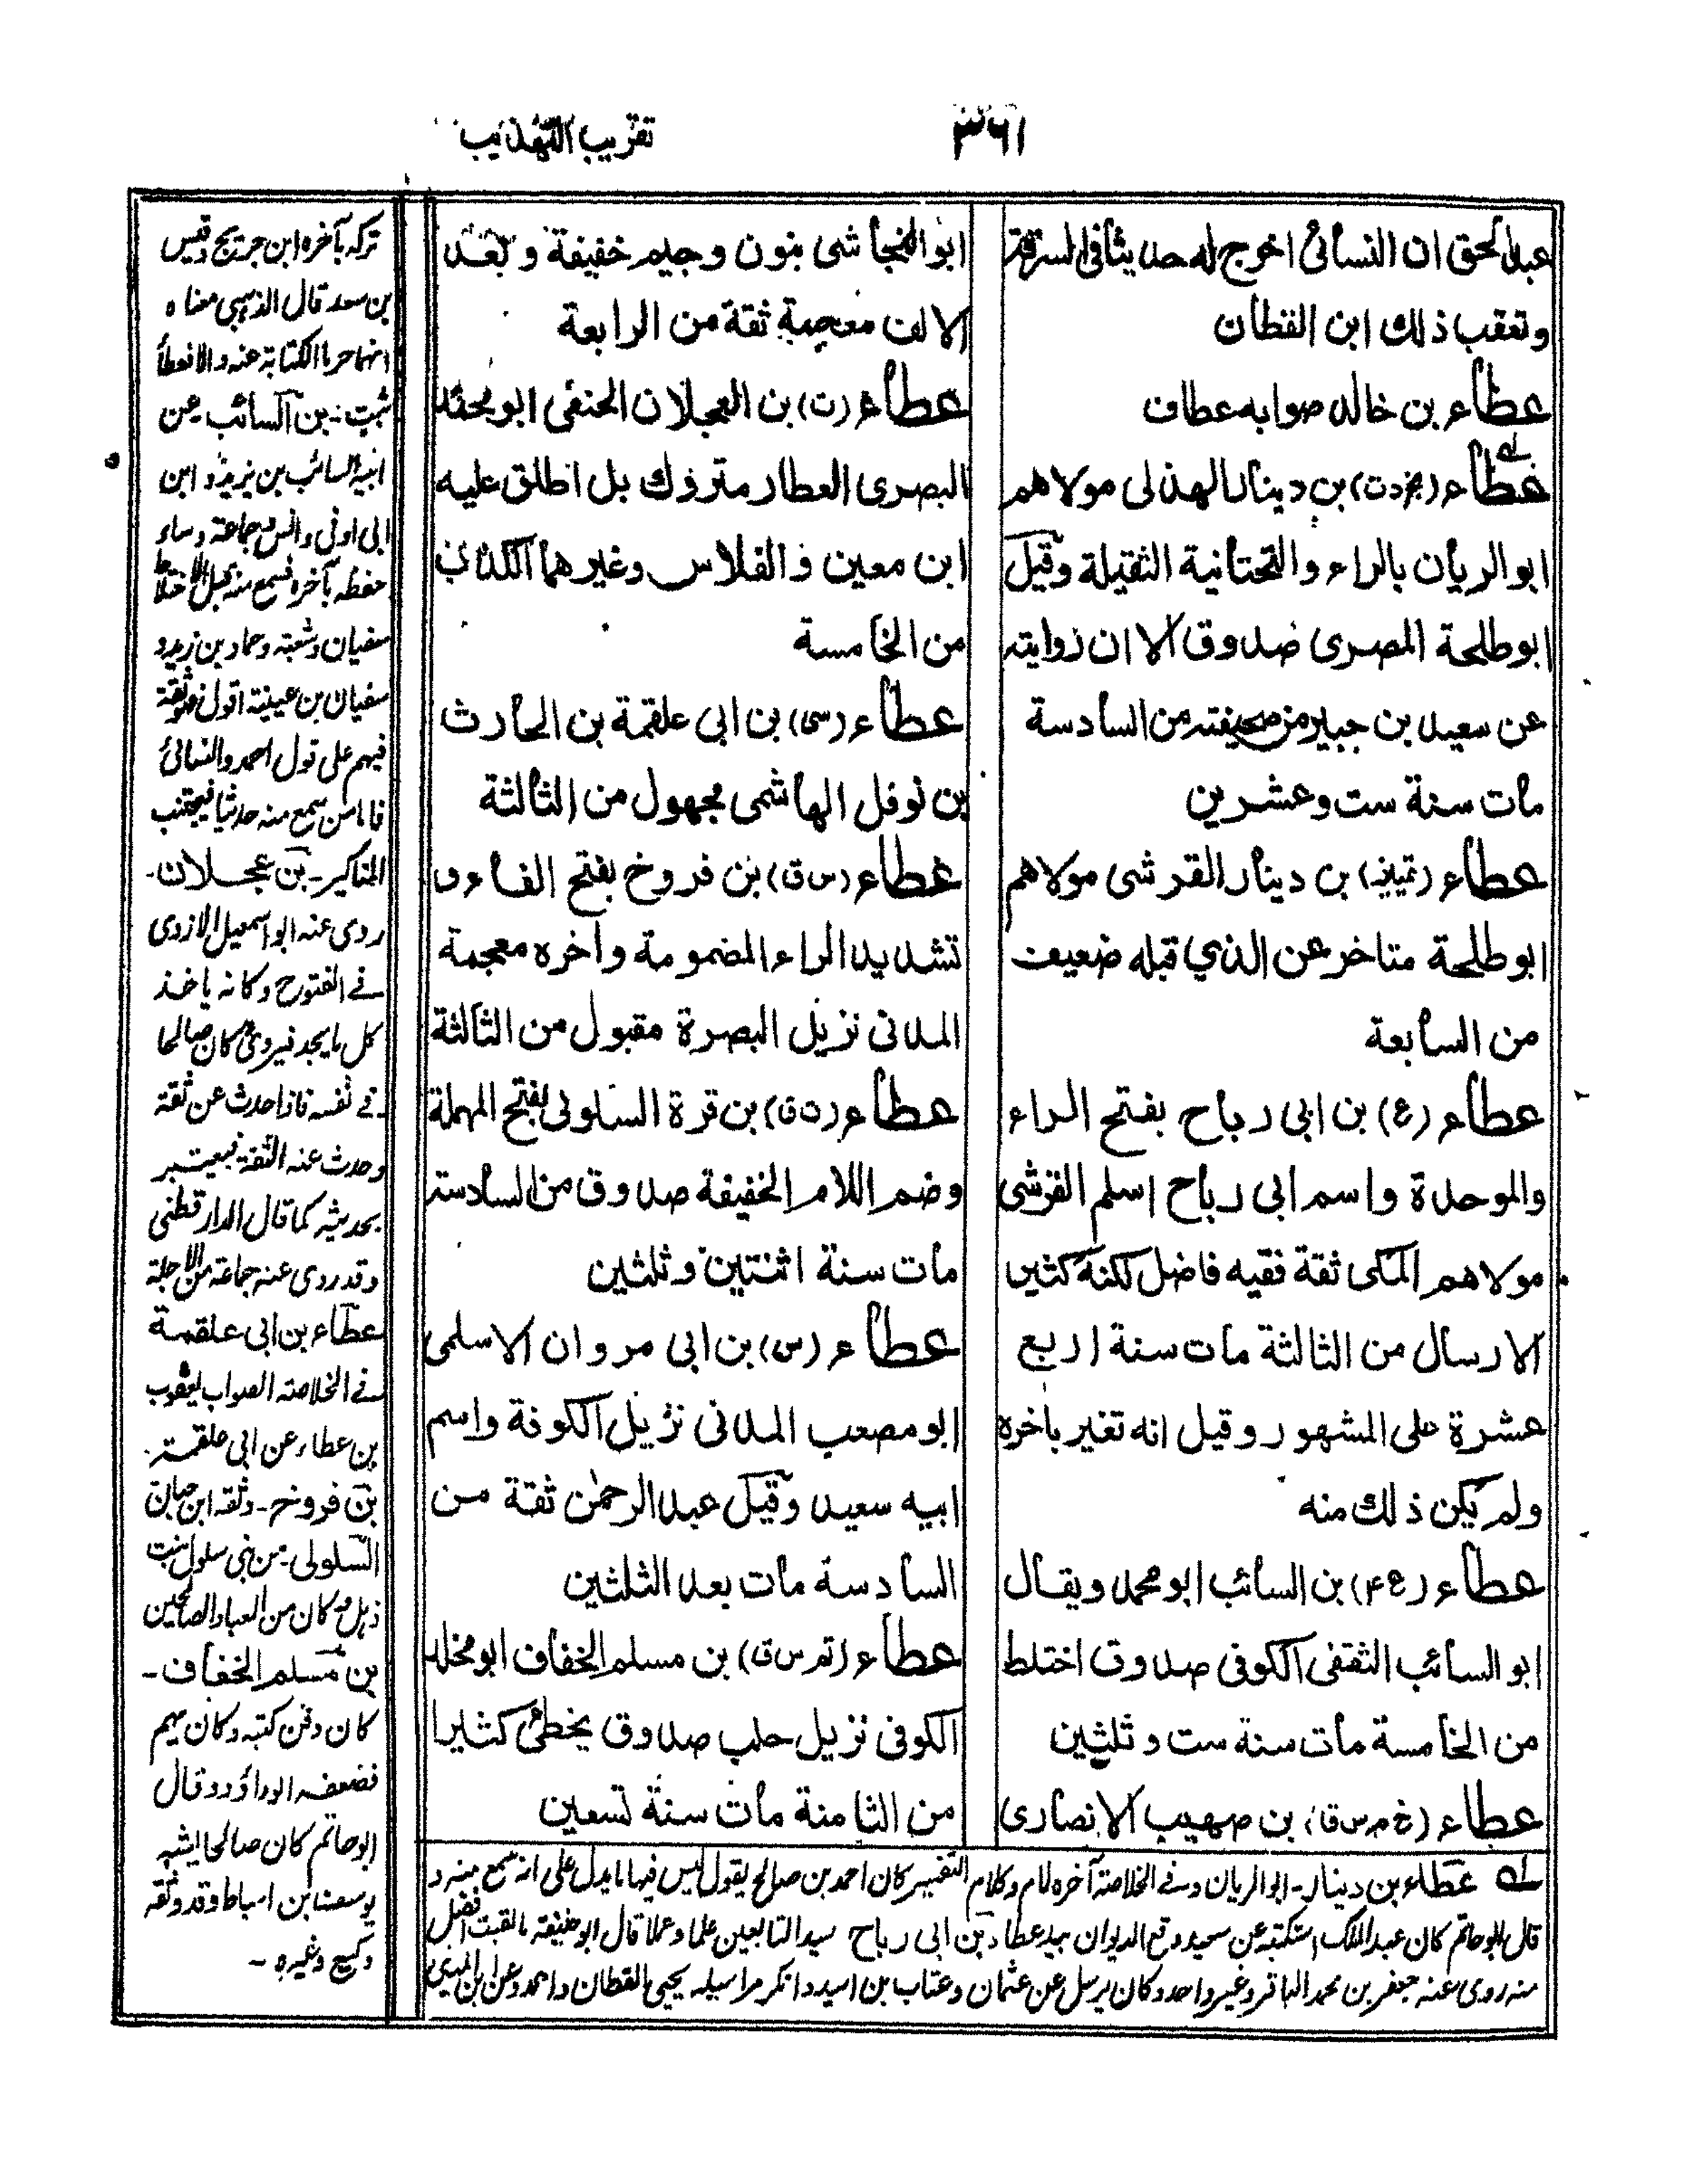 تقريب التهذيب
٣٦١
عبد الحق ان النسائى اخرج له حديثا فى السرقة
وتعقب ذلك ابن القطان
عطاء بن خالد صوابه عطاف
عطاء (بخ د ت) بن دينار الهذلى مولاهم
ابو الريان بالراء والتحتانية الثقيلة وقيل
ابو طلحة المصرى صدوق الا ان روايته
عن سعيد بن جبير من صحيفته من السادسة
مات سنة ست وعشرين
عطاء (تمييز) بن دينار القرشى مولاهم
ابو طلحة متاخر عن الذي قبله ضعيف
من السابعة
عطاء (ع) بن ابى رباح بفتح الراء
والموحدة واسم ابى رباح اسلم القرشى
مولاهم المكى ثقة فقيه فاضل لكنه كثير
الارسال من الثالثة مات سنة اربع
عشرة على المشهور وقيل انه تغير باخره
ولم يكن ذلك منه
عطاء (خ ۴) بن السائب ابو محمد ويقال
ابو السائب الثقفى الكوفى صدوق اختلط
من الخامسة مات سنة ست وثلثين
عطاء (خ م س ق) بن صهيب الانصارى
ابو النجاشى بنون وجيم خفيفة وبعد
الالف معجمة ثقة من الرابعة
عطاء (ت) بن العجلان الحنفى ابو محمد
البصرى العطار متروك بل اطلق عليه
ابن معين والفلاس وغيرهما الكذب
من الخامسة
عطاء (سى) بن ابى علقمة بن الحارث
بن نوفل الهاشمى مجهول من الثالثة
عطاء (س ق) بن فروخ بفتح الفاء و
تشديد الراء المضمومة واخره معجمة
المدنى نزيل البصرة مقبول من الثالثة
عطاء (ت ق) بن قرة السلولى بفتح المهملة
وضم اللام الخفيفة صدوق من السادسة
مات سنة اثنتين وثلثين
عطاء (س) بن ابى مروان الاسلمى
ابو مصعب المدنى نزيل الكوفة واسم
ابيه سعيد وقيل عبد الرحمٰن ثقة من
السادسة مات بعد الثلثين
عطاء (تم س ق) بن مسلم الخفاف ابو مخلد
الكوفى نزيل حلب صدوق يخطئ كثيرا
من الثامنة مات سنة تسعين
تركه بآخره ابن جريج وقيس
بن سعد قال الذهبى معناه
انهما حرما الكتابة عنه والا فعطأ
ثبت - بن السائب - عن
ابيه السائب بن يزيد و ابن
ابى اوفى وانس وجماعة وساء
حفظه بآخره فسمع منه قبل الاختلاط
سفيان وشعبة وحماد بن زيد و
سفيان بن عيينة اقول فهو ثقة
فيهم على قول احمد والنسائى
فاما من سمع منه حديثا فيجتنب
المناكير - بن عجلان -
روى عنه ابو اسمعيل الازدى
فى الفتوح وكانه ياخذ
كل ما يجد فيروى كان صالحا
فى نفسه فاذا حدث عن ثقة
وحدث عنه الثقة فيعتبر
بحديثه كما قال الدارقطنى
وقد روى عنه جماعة من الاجلة
عطاء بن ابى علقمة
فى الخلاصة الصواب يعقوب
بن عطاء عن ابى علقمة
بن فروخ - وثقه ابن حبان
السلولى - من بنى سلول بنت
ذهل وكان من العباد الصالحين
بن مسلم الخفاف -
كان دفن كتبه وكان يهم
فضعفه ابو داؤد وقال
ابو حاتم كان صالحا يشبه
يوسف بن اسباط وقد وثقه
وكيع وغيره -
له عطاء بن دينار - ابو الريان وفى الخلاصة آخره لام وكلام التفسير كان احمد بن صالح يقول ليس فيها ما يدل على انه سمع منه و
قال ابو حاتم كان عبد الملك استكتبه عن سعيد وقع الديوان بيد عطاء - بن ابى رباح سيد التابعين علما وعملا قال ابو حنيفة ما لقيت افضل
منه روى عنه جعفر بن محمد الباقر وغير واحد وكان يرسل عن عثمان وعتاب بن اسيد وانكر مراسيله يحيى القطان واحمد وعن ابن المدينى